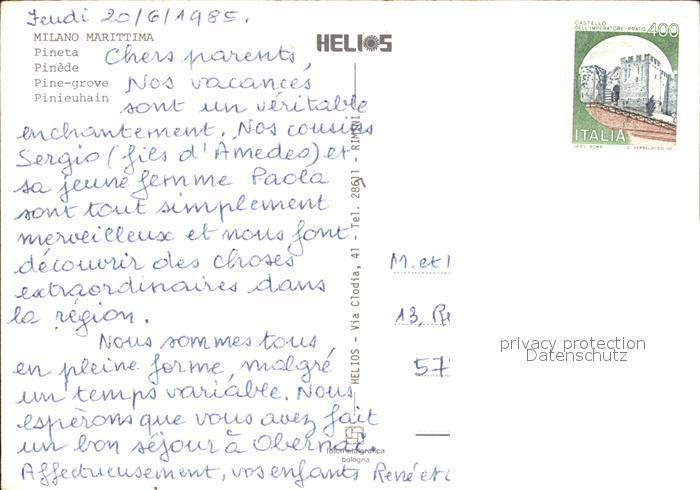 Jeudi 20/6/1985.
MILANO MARITTIMA
Pineta
Pinède
Pine-grove
Pinieuhain
HELIOS
CASTELLO
DELL'IMPERATORE - PRATO 400
ITALIA
I.P.Z.S. ROMA
Chers parents,
Nos vacances
sont un véritable
enchantement. Nos cousins
Sergio (fils d'Amedeo) et
sa jeune femme Paola
sont tout simplement
merveilleux et nous font
découvrir des choses
extraordinaires dans
la région.
Nous sommes tous,
en pleine forme, malgré
un temps variable. Nous
espérons que vous avez fait
un bon séjour à Obernai.
Affectueusement, vos enfants René et
HELIOS - Via Clodia, 41 - Tel. 28611 - RIMINI
fotometalgrafica
bologna
M. et
13, Re
57
privacy protection
Datenschutz